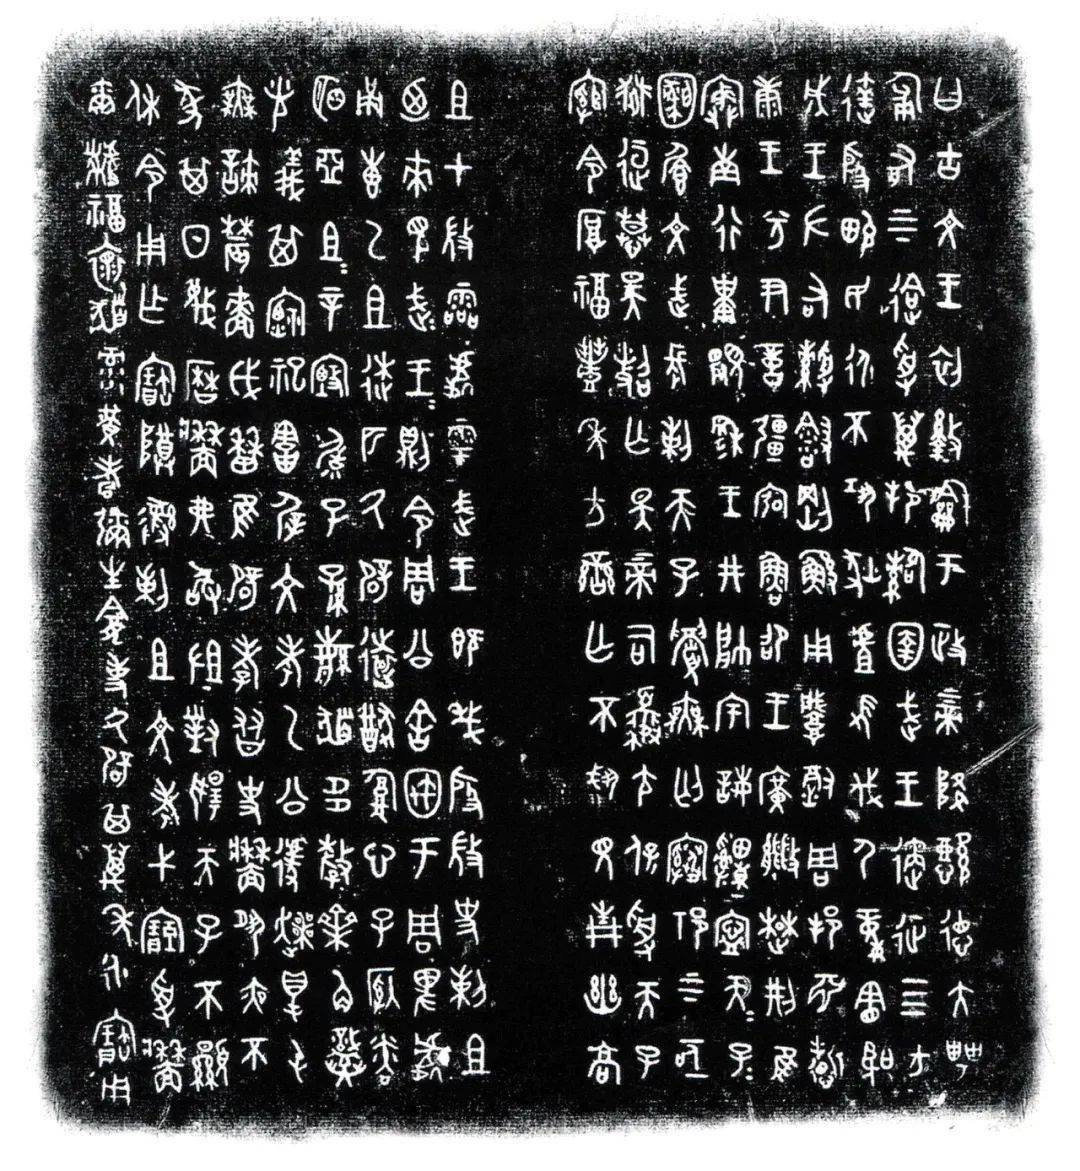 曰古文王初𢿌龢于政上帝降懿德大甹
匍有上下迨受萬邦𩁹圉武王遹征四方
達殷畯民永不巩狄虘髟伐尸童憲聖
成王左右綬剛鯀用肇徹周邦淵哲
康王兮尹啻彊宖魯卲王廣㡴楚荊隹
寏南行祗景穆王井帥宇誨申寧天子
天子圝𢊾文武長剌天子𧶠無匃𧽊祁上下
亟獄逗慕昊照亡斁上帝司夒尢保受天子
綰令厚福豐年方蠻亡不𢦚見青幽高
且才微霝處𩁹武王既𢦏殷微史剌且
迺來見武王武王則令周公舍㝢于周卑處
甬叀乙且逨匹氒辟遠猷腹心子納粦
明亞且且辛𡫬毓子孫繁祓多釐齊角熾
光義其禋祀害犀文考乙公遽爽得屯
無諫農嗇戉歷隹辟孝友史墻夙夜不
㒸其日蔑曆墻弗敢沮對揚天子不顯
休令用乍寶尊彝剌且文考弋寵受墻
爾𪓐福懷猶彔黃耇彌生龕事氒辟其萬年永寶用